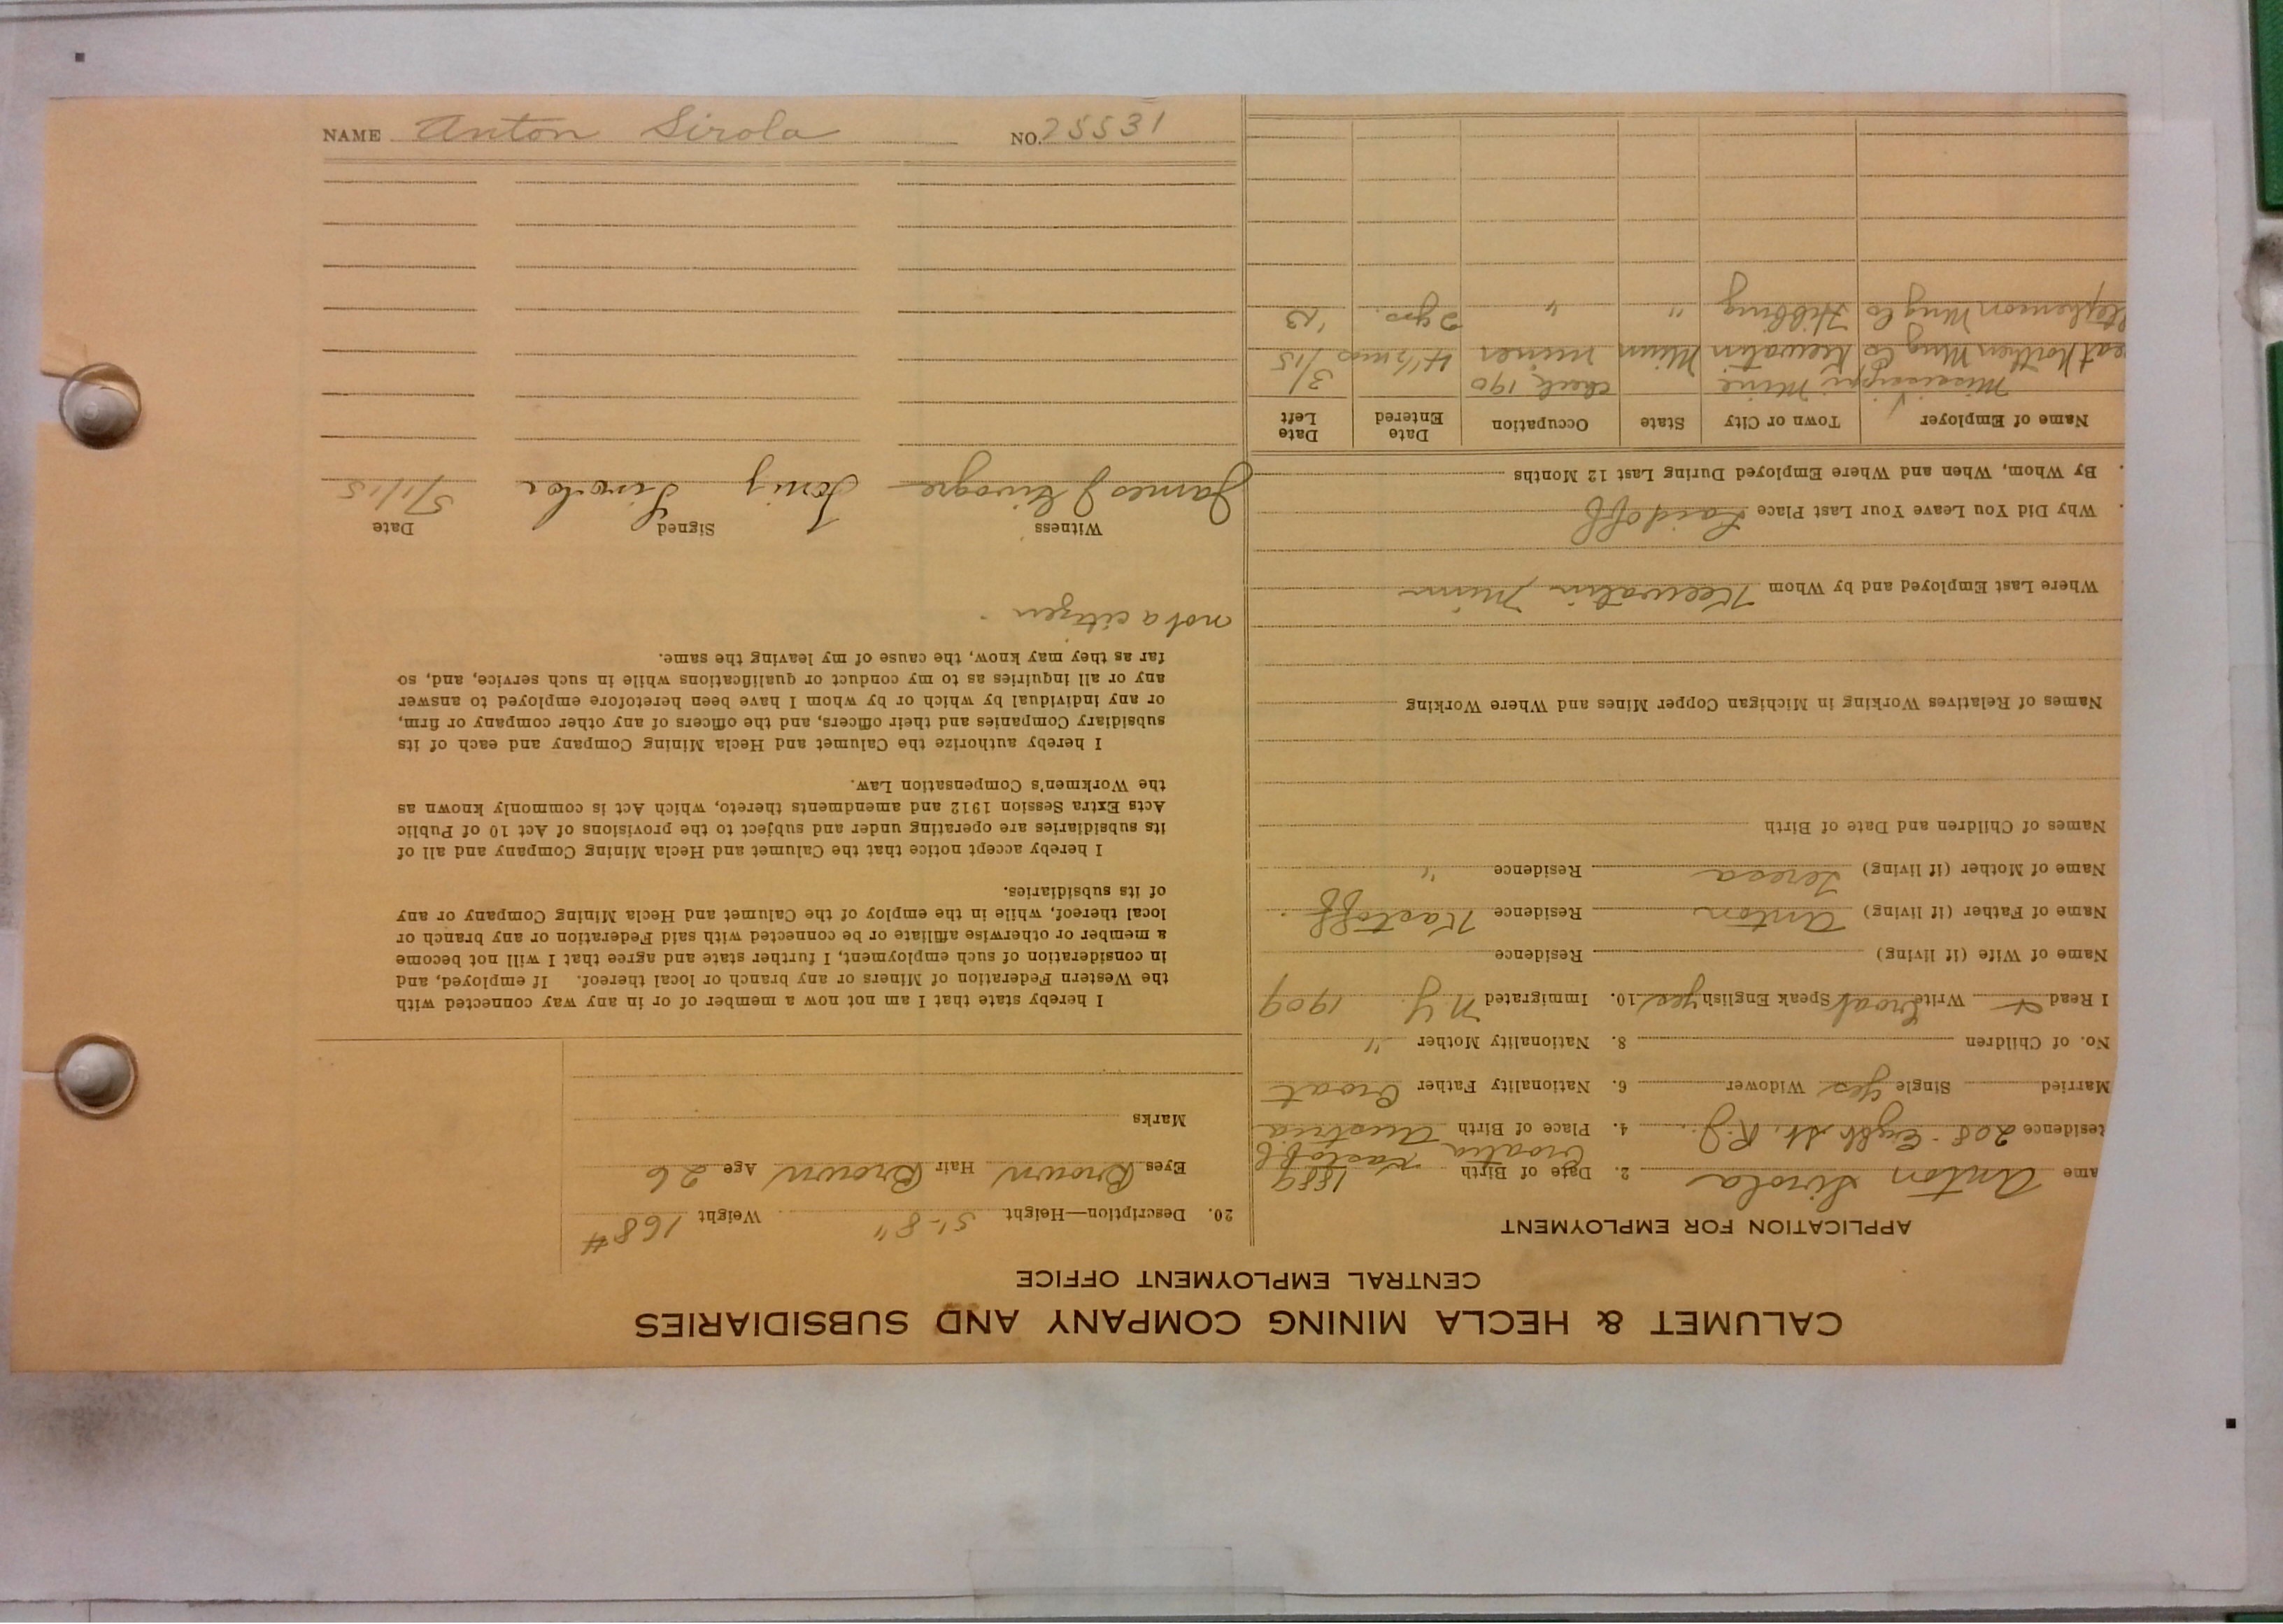 CALUMET & HECLA MINING COMPANY AND SUBSIDIARIES
CENTRAL EMPLOYMENT OFFICE
APPLICATION FOR EMPLOYMENT
ame Anton Sirola 2. Date of Birth 1889
Croatia Kastoff
Residence 208 - Eighth St. R.J. 4. Place of Birth Austria
Married Single yes Widower 6. Nationality Father Croat
No. of Children 8. Nationality Mother "
I Read Write Croat Speak English yes 10. Immigrated N.Y. 1909
Name of Wife (if living) Residence
Name of Father (if living) Anton Residence Kastoff
Name of Mother (if living) Teresa Residence "
Names of Children and Date of Birth
Names of Relatives Working in Michigan Copper Mines and Where Working
Where Last Employed and by Whom Keewatin Minn
Why Did You Leave Your Last Place Laid off
By Whom, When and Where Employed During Last 12 Months
Name of Employer Town or City State Occupation Date Entered Date Left
Mississippi Mine check 190
eat Northern Mng Co Keewatin Minn miner 4 1/2 mos 3/15
Stephenson Mng Co Hibbing " " 2 yrs. '13
20. Description—Height 5'-8" Weight 168#
Eyes Brown Hair Brown Age 26
Marks
I hereby state that I am not now a member of or in any way connected with
the Western Federation of Miners or any branch or local thereof. If employed, and
in consideration of such employment, I further state and agree that I will not become
a member or otherwise affiliate or be connected with said Federation or any branch or
local thereof, while in the employ of the Calumet and Hecla Mining Company or any
of its subsidiaries.
I hereby accept notice that the Calumet and Hecla Mining Company and all of
its subsidiaries are operating under and subject to the provisions of Act 10 of Public
Acts Extra Session 1912 and amendments thereto, which Act is commonly known as
the Workmen's Compensation Law.
I hereby authorize the Calumet and Hecla Mining Company and each of its
subsidiary Companies and their officers, and the officers of any other company or firm,
or any individual by which or by whom I have been heretofore employed to answer
any or all inquiries as to my conduct or qualifications while in such service, and, so
far as they may know, the cause of my leaving the same.
not a citizen
Witness Signed Date
James J Sirola 5/1/15
NAME Anton Sirola NO. 25531